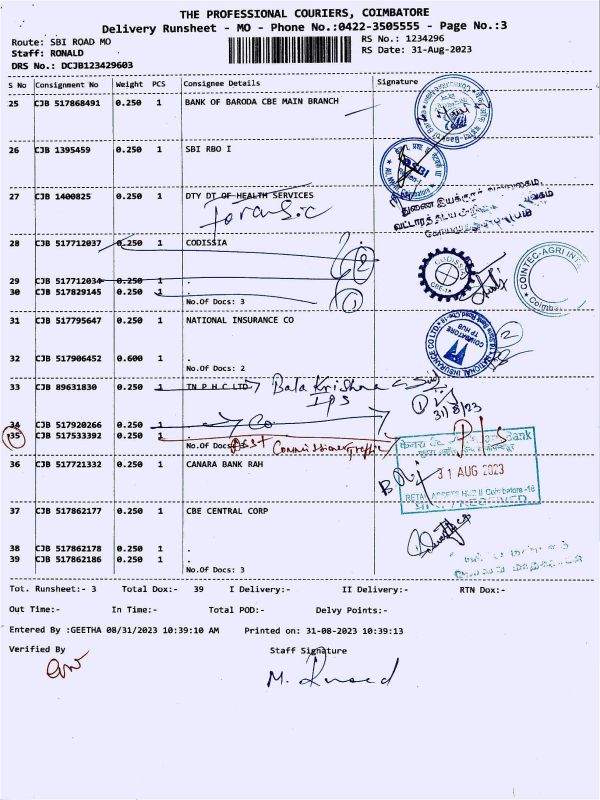 THE PROFESSIONAL COURIERS, COIMBATORE
Delivery Runsheet - MO - Phone No.:0422-3505555 - Page No.:3
Route: SBI ROAD MO
RS No.: 1234296
Staff: RONALD
RS Date: 31-Aug-2023
DRS No.: DCJB123429603
S No Consignment No Weight PCS Consignee Details Signature
25 CJB 517868491 0.250 1 BANK OF BARODA CBE MAIN BRANCH
26 CJB 1395459 0.250 1 SBI RBO I
27 CJB 1400825 0.250 1 DTY DT OF HEALTH SERVICES
Forensic
28 CJB 517712037 0.250 1 CODISSIA
2
CODISSIA
CBE-18
COINTEC-AGRI
Coimbat
29 CJB 517712034 0.250 1 .
30 CJB 517829145 0.250 1 .
1
No.Of Docs: 3
31 CJB 517795647 0.250 1 NATIONAL INSURANCE CO
2
NATIONAL INSURANCE CO LTD
TP HUB
COIMBATORE
32 CJB 517906452 0.600 1 .
No.Of Docs: 2
33 CJB 89631830 0.250 1 TN P H C LTD
Bala Krishna
IPS
1
31/8/23
34 CJB 517920266 0.250 1
Co
35 CJB 517533392 0.250 1 .
No.Of Docs:
Asst Commissioner Traffic
Bank
31 AUG 2023
RETAIL ASSETS HUB II Coimbatore -18
RECEIVED
36 CJB 517721332 0.250 1 CANARA BANK RAH
37 CJB 517862177 0.250 1 CBE CENTRAL CORP
38 CJB 517862178 0.250 1 .
39 CJB 517862186 0.250 1 .
No.Of Docs: 3
Tot. Runsheet:- 3 Total Dox:- 39 I Delivery:- II Delivery:- RTN Dox:-
Out Time:- In Time:- Total POD:- Delvy Points:-
Entered By :GEETHA 08/31/2023 10:39:10 AM Printed on: 31-08-2023 10:39:13
Verified By
Staff Signature